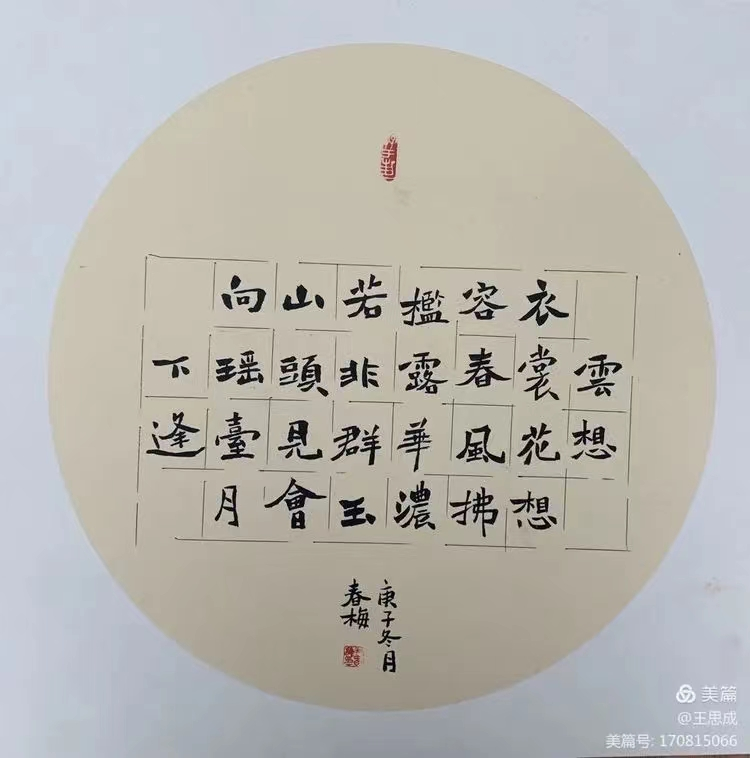 雲想
衣裳花想
容春風拂
檻露華濃
若非群玉
山頭見會
向瑶臺月
下逢
庚子冬月
春梅
美篇
@王思成
美篇号: 170815066